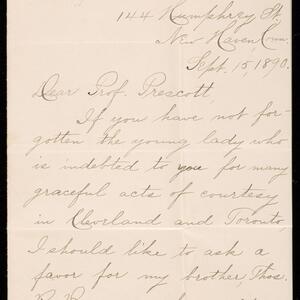 144 Humphrey St.
New Haven, Conn.
Sept. 15, 1890.
Dear Prof. Prescott,
If you have not for-
gotten the young lady who
is indebted to you for many
graceful acts of courtesy
in Cleveland and Toronto,
I should like to ask a
favor for my brother, Thos.